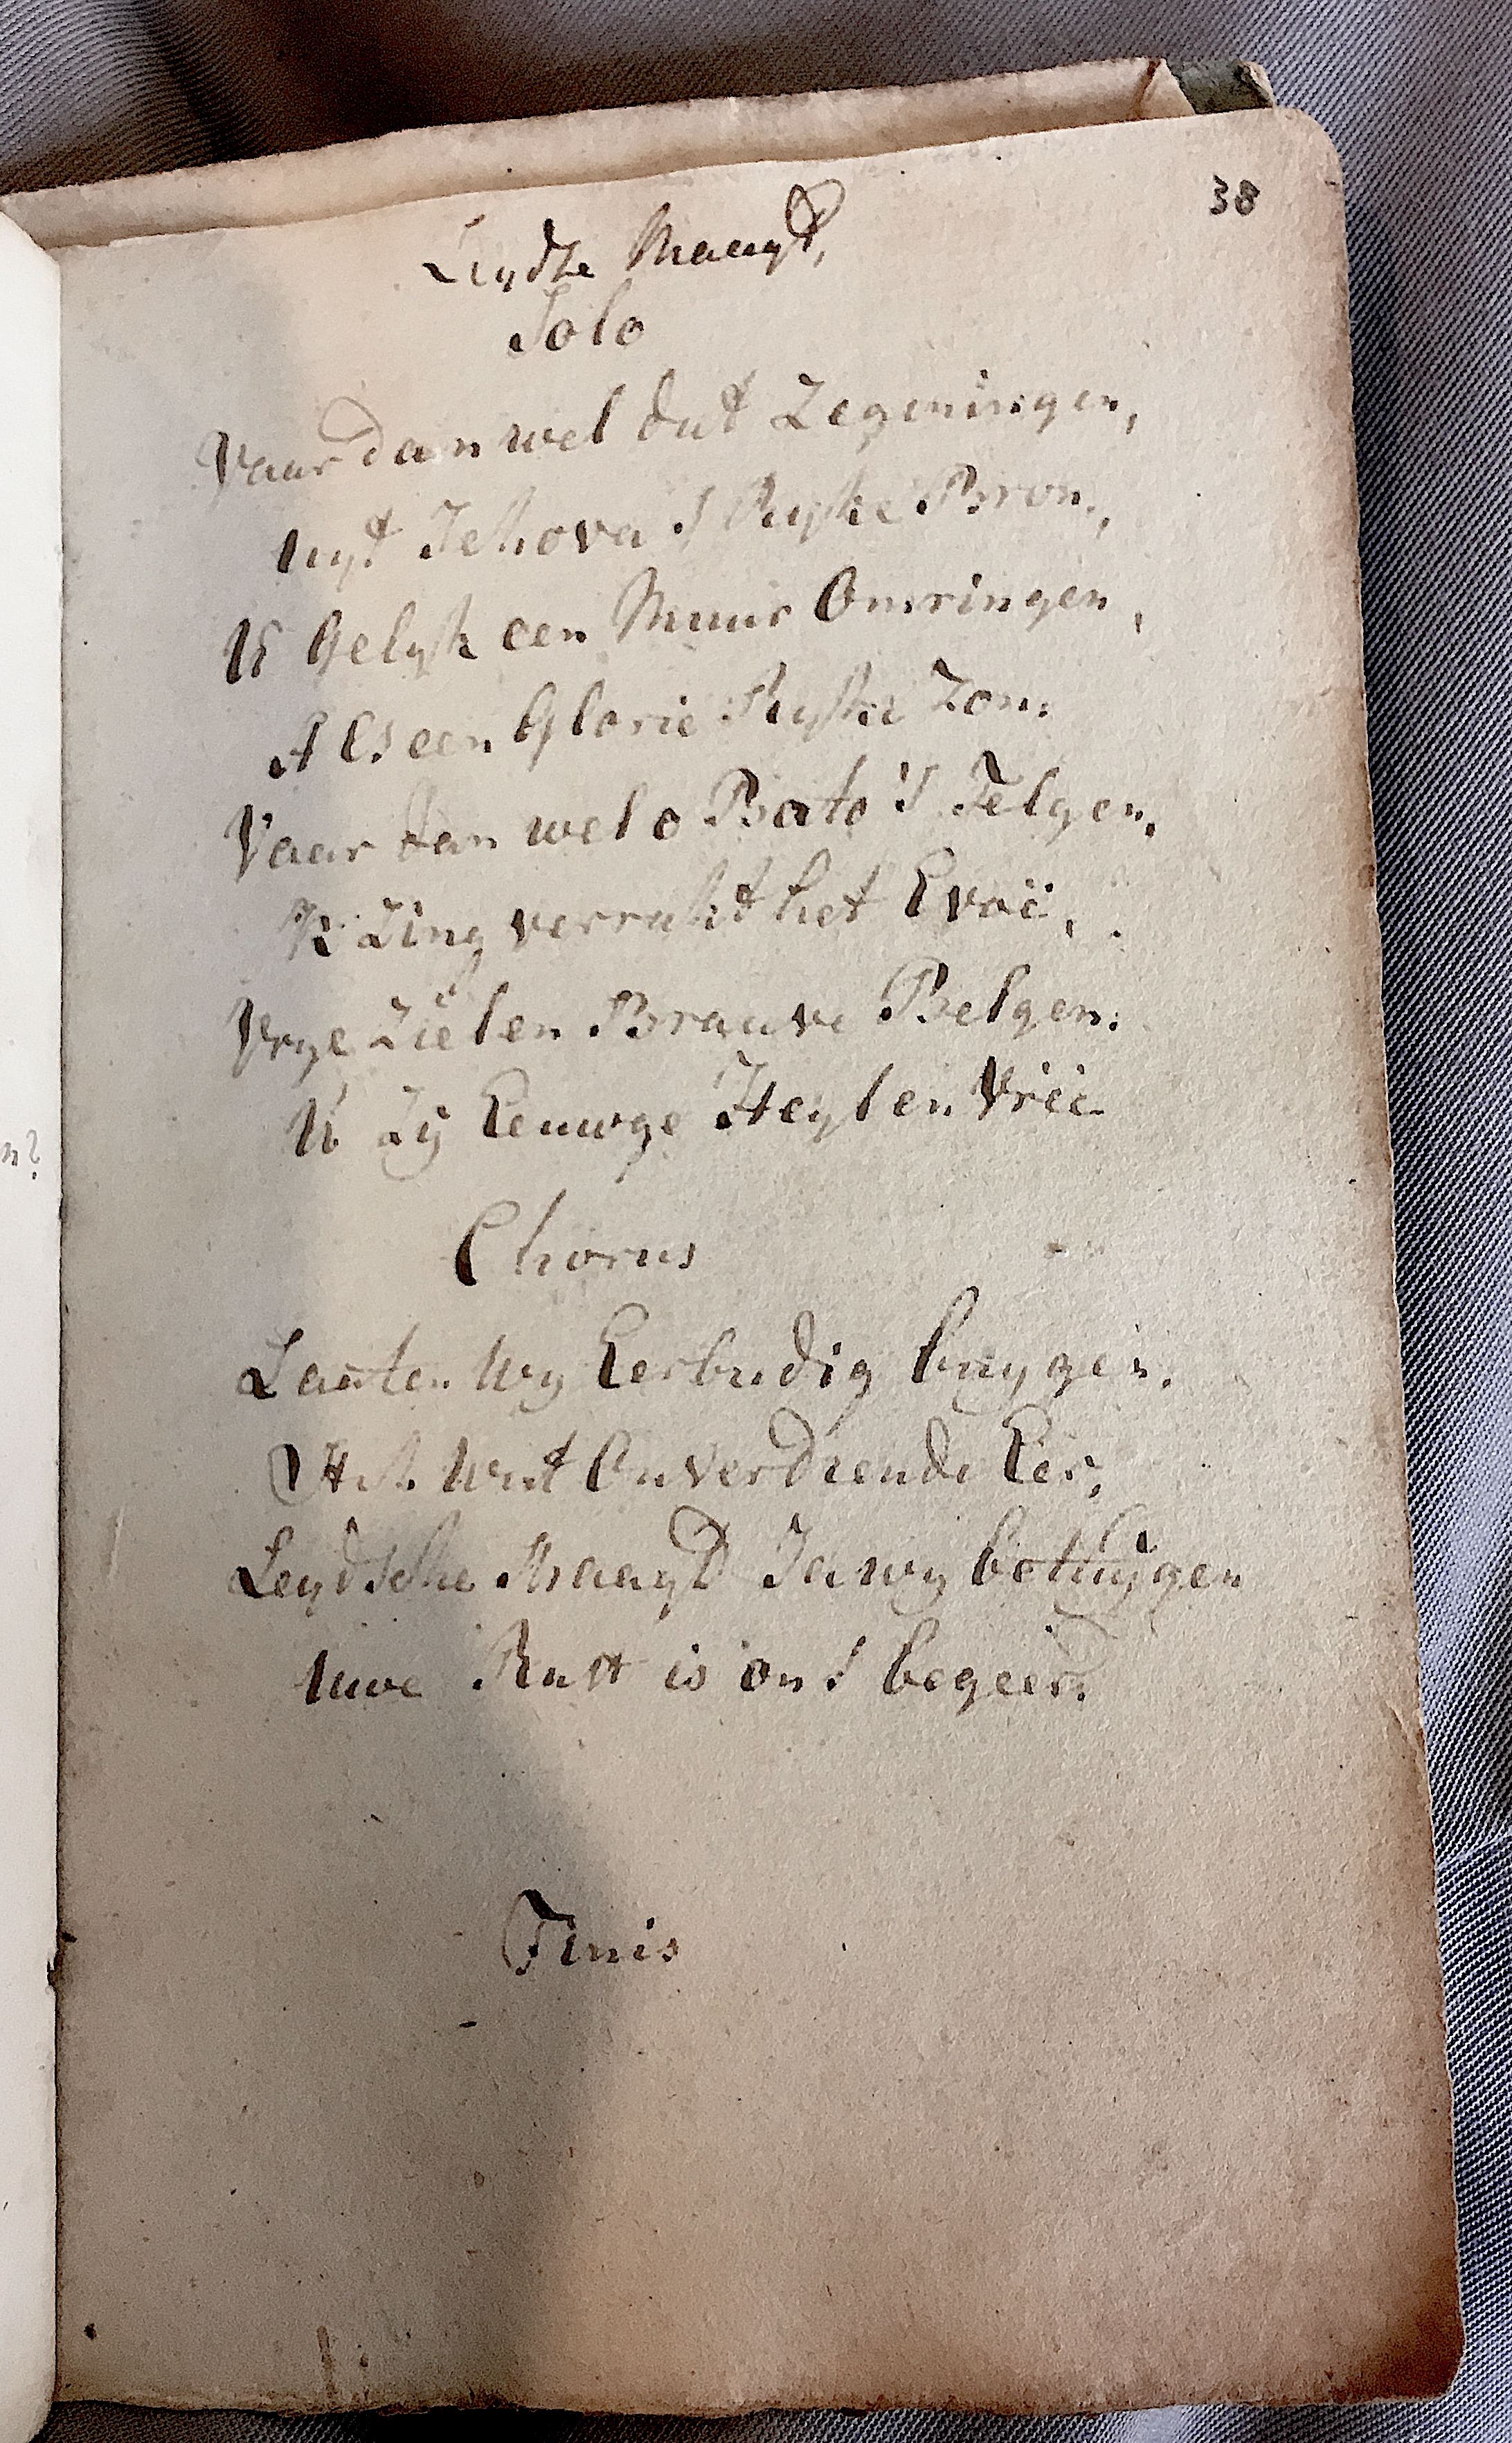 38
Leydze Maagd,
Solo
Vaar dan wel dat Zegeningen,
uyt Jehova's Ryke Bron,
U Gelyk een Muur Omringen,
Als een Glorie Ryke Zon.
Vaar dan wel o Bato's Telgen,
K Zing verrukt het Evoë,
Vrye Zielen Brauve Belgen.
U Zÿ Eeuwge Heyl en Vrëe
Chorus
Laaten Wy Eerbudig buygen.
Het Wert Onverdiende Eer,
Leydsche Maagd Ja wy betuÿgen
uwe Rust is ons begeer.
Finis
n?